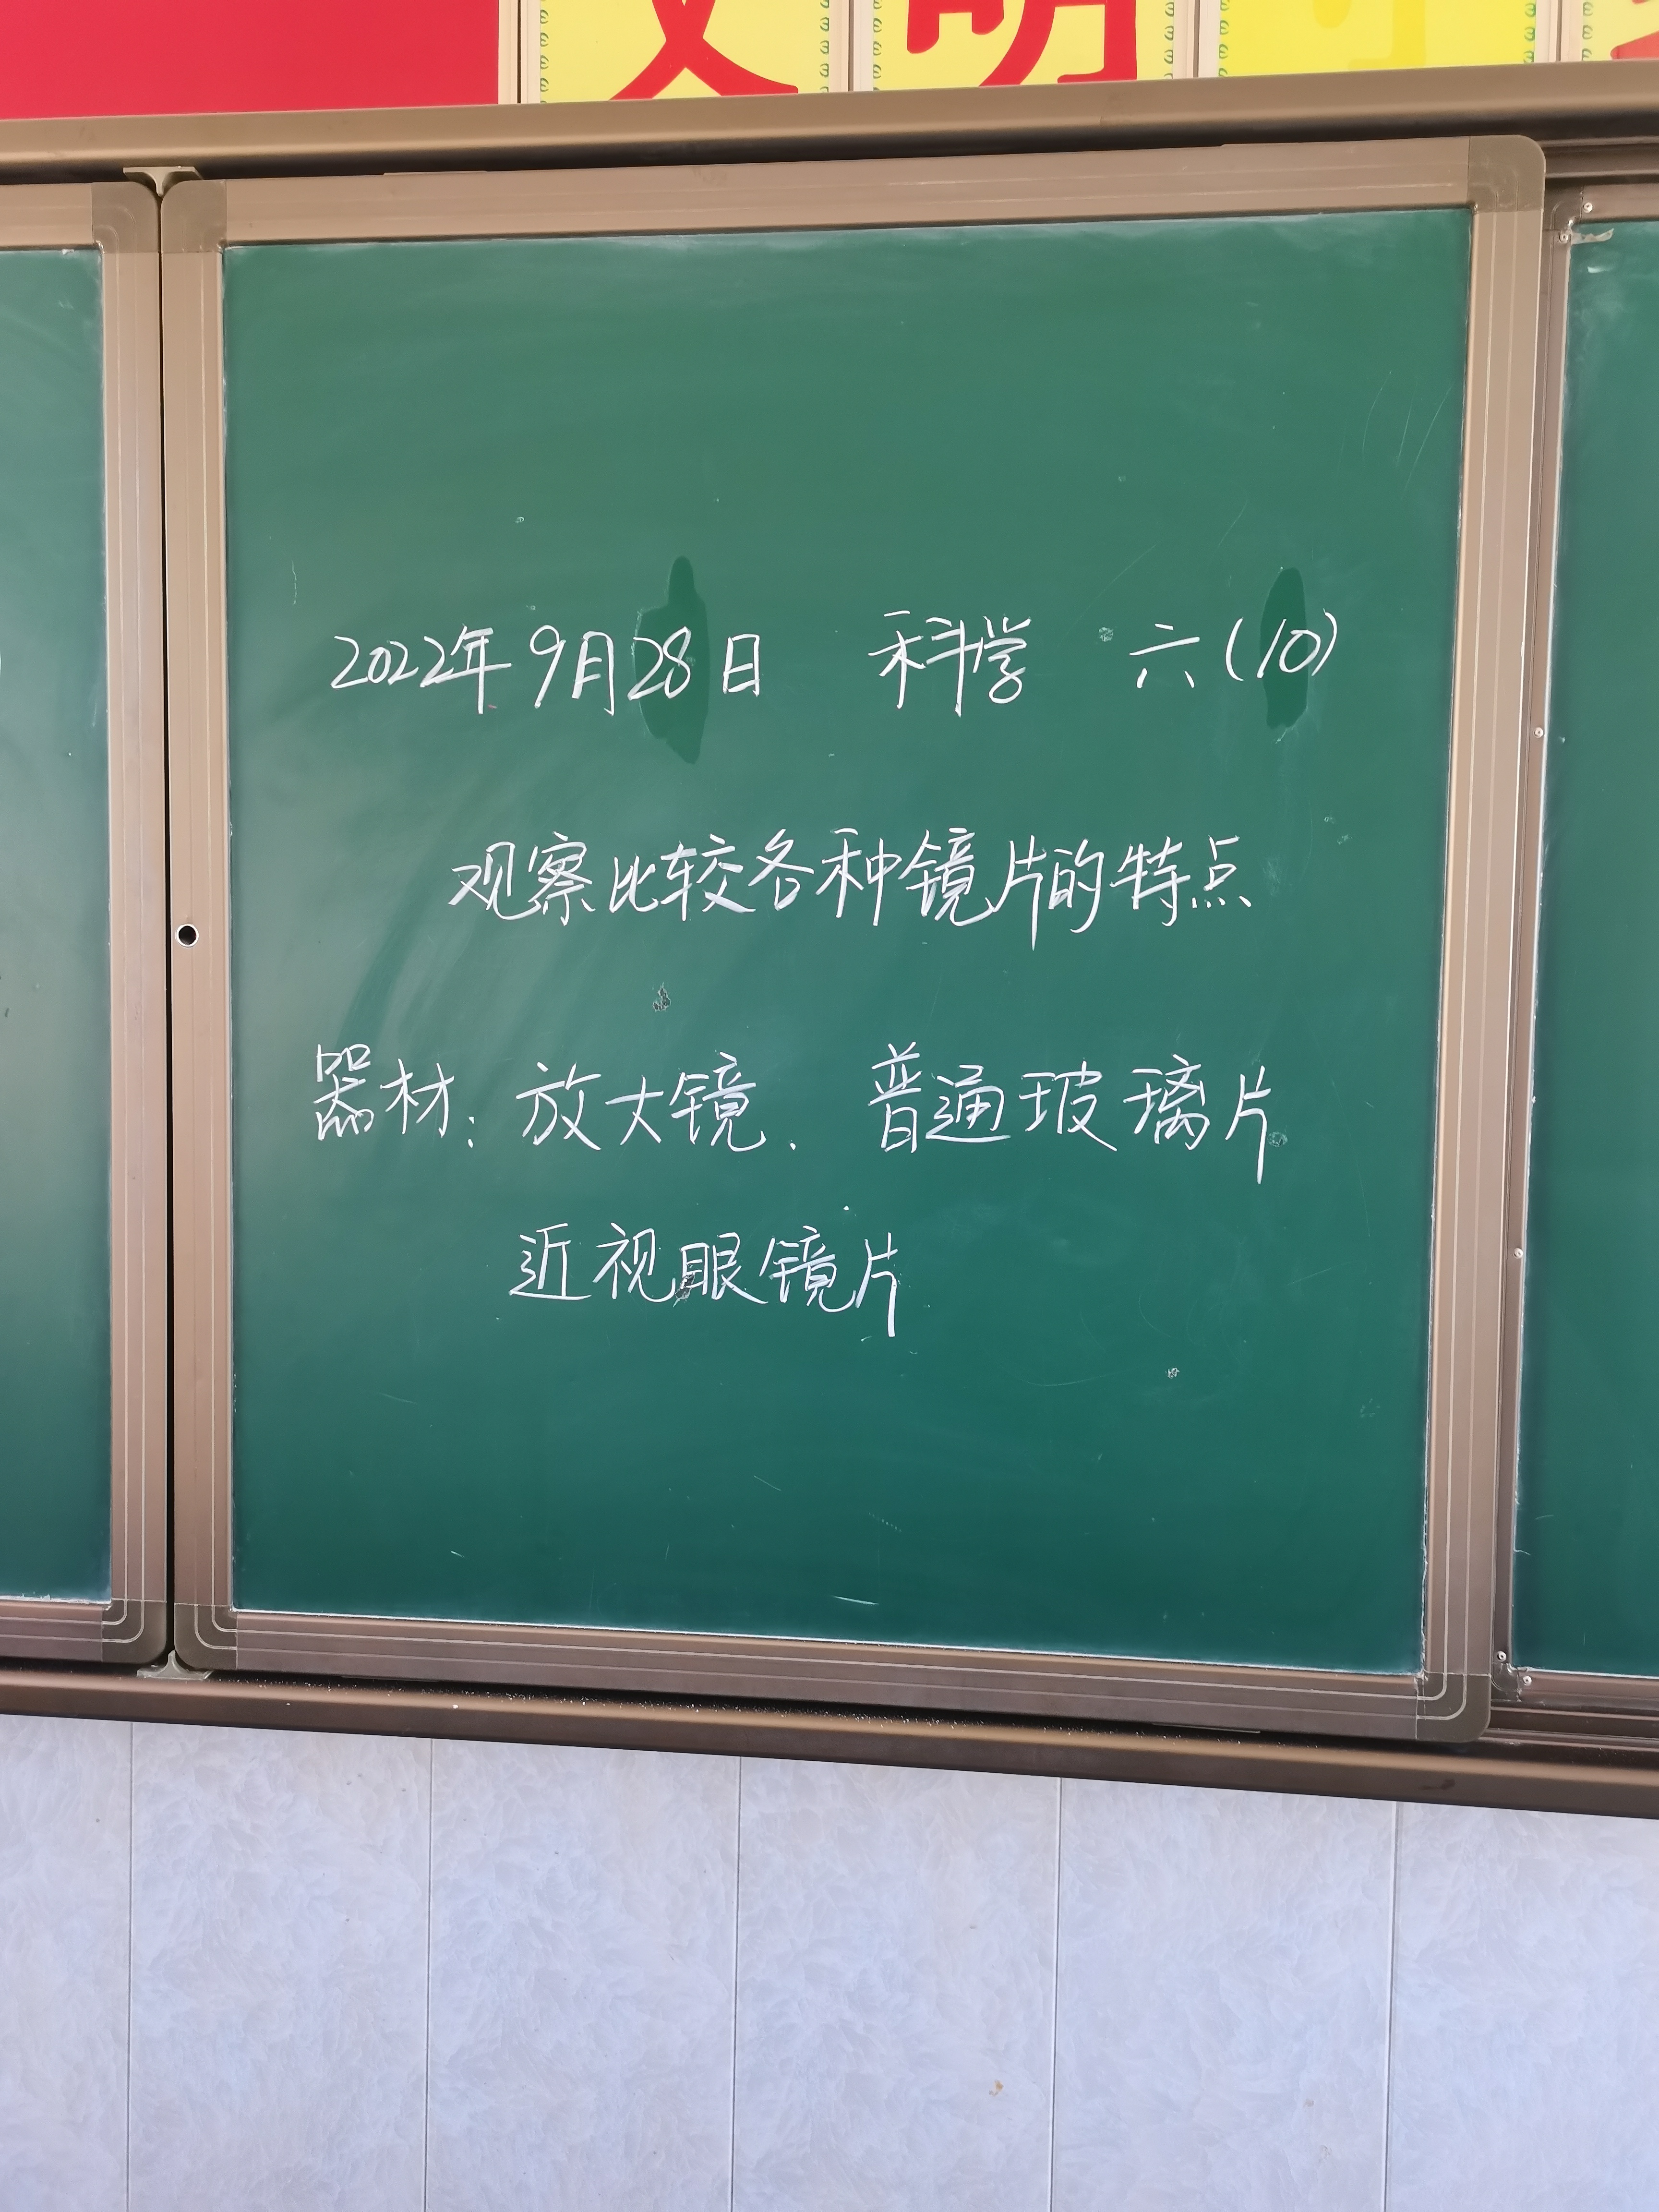 文明
2022年9月28日 科学 六(10)
观察比较各种镜片的特点
器材：放大镜、普通玻璃片
近视眼镜片